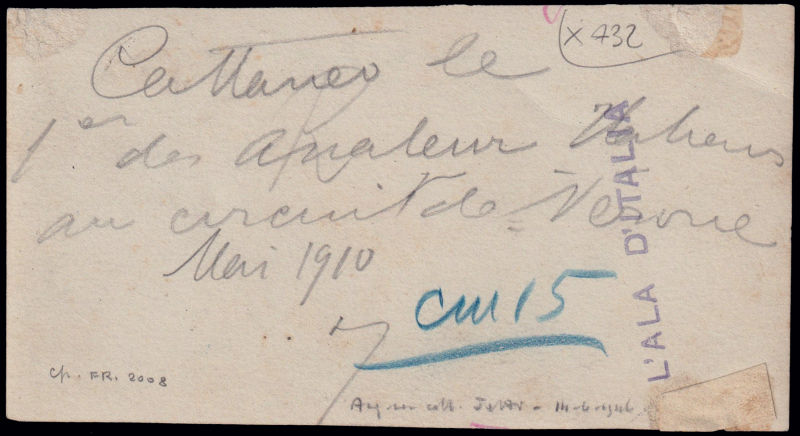 x 432
Cattaneo le
1er des Amateur Italiens
au circuit de Verone
Mai 1910
cm 15
L'ALA D'ITALIA
FR. 2008